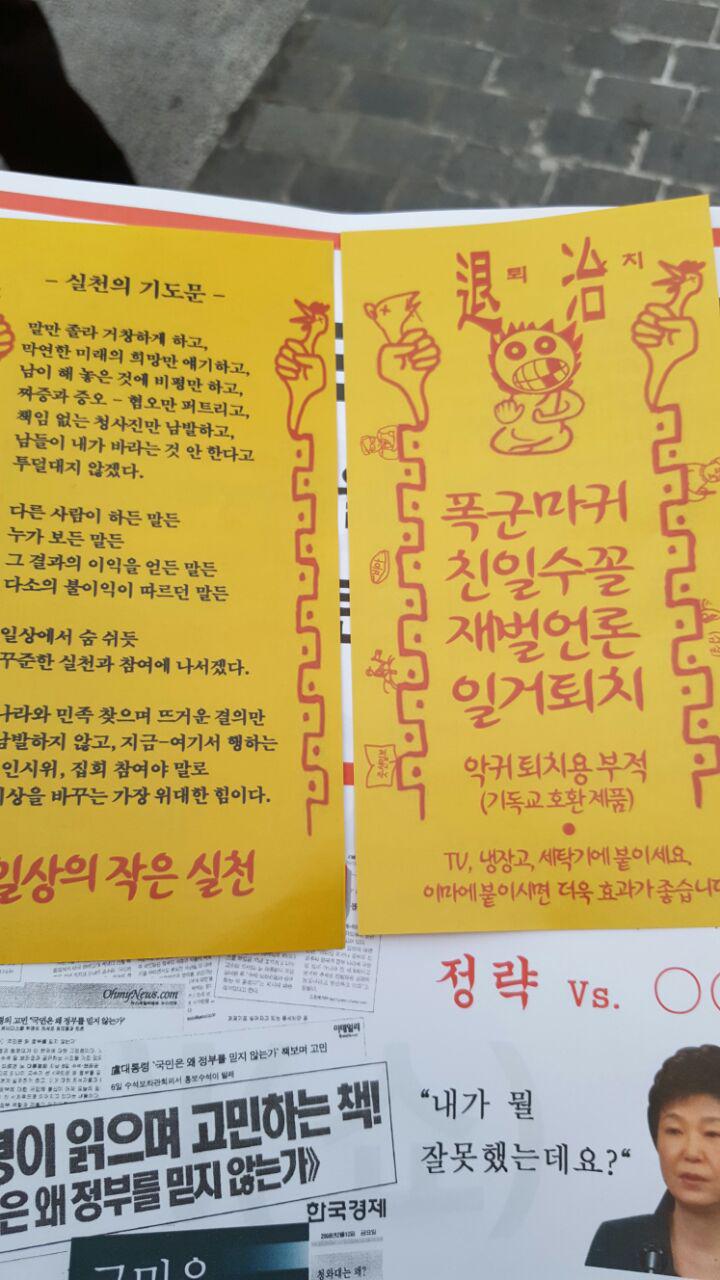 - 실천의 기도문 -
말만 졸라 거창하게 하고,
막연한 미래의 희망만 얘기하고,
남이 해 놓은 것에 비평만 하고,
짜증과 증오 - 혐오만 퍼트리고,
책임 없는 청사진만 남발하고,
남들이 내가 바라는 것 안 한다고
투덜대지 않겠다.
다른 사람이 하든 말든
누가 보든 말든
그 결과의 이익을 얻든 말든
다소의 불이익이 따르던 말든
일상에서 숨 쉬듯
꾸준한 실천과 참여에 나서겠다.
나라와 민족 찾으며 뜨거운 결의만
남발하지 않고, 지금-여기서 행하는
인시위, 집회 참여야 말로
세상을 바꾸는 가장 위대한 힘이다.
일상의 작은 실천
退 퇴 治 치
폭군마귀
친일수꼴
재벌언론
일거퇴치
악귀 퇴치용 부적
(기독교 호환 제품)
TV, 냉장고, 세탁기에 붙이세요.
이마에 붙이시면 더욱 효과가 좋습니다
정략 Vs. ○○
"내가 뭘
잘못했는데요?"
OhmyNews.com
의 고민 '국민은 왜 정부를 믿지 않는가'
이데일리
盧대통령 '국민은 왜 정부를 믿지 않는가' 책보며 고민
6일 수석보좌관회의서 홍보수석이 발제
령이 읽으며 고민하는 책!
은 왜 정부를 믿지 않는가》
한국경제
금요일
청와대는 왜?
국민은